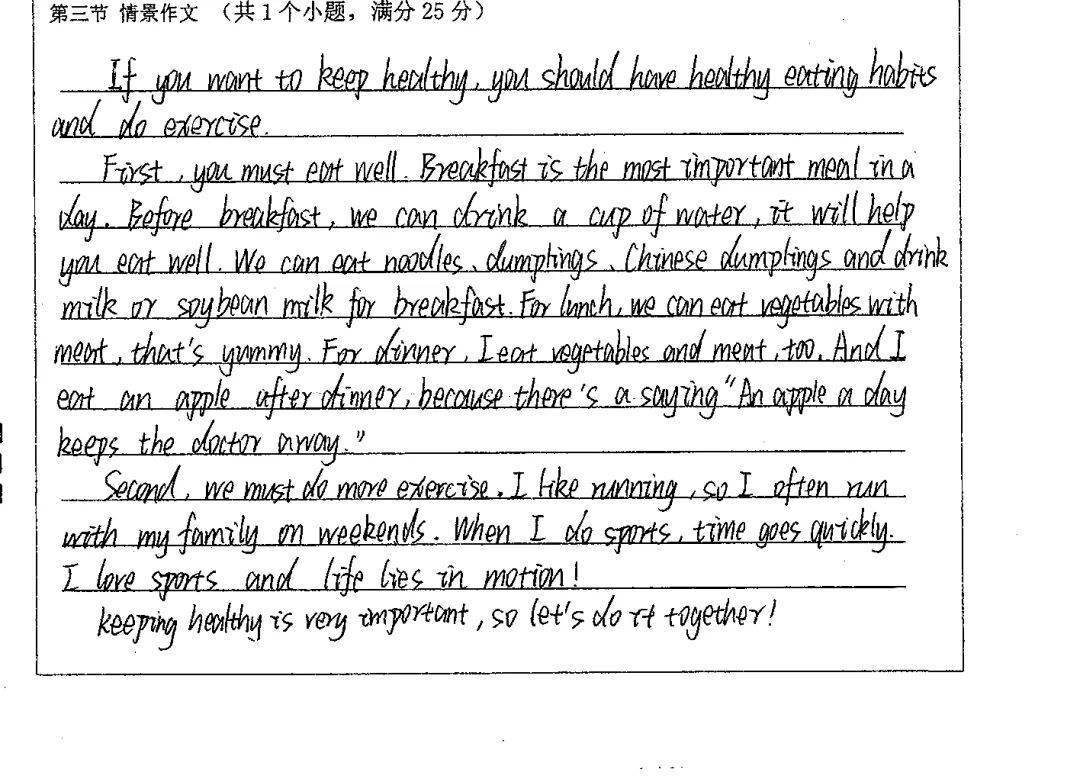 第三节 情景作文 (共1个小题, 满分25分)
If you want to keep healthy, you should have healthy eating habits
and do exercise.
First, you must eat well. Breakfast is the most important meal in a
day. Before breakfast, we can drink a cup of water, it will help
you eat well. We can eat noodles、dumplings、Chinese dumplings and drink
milk or soybean milk for breakfast. For lunch, we can eat vegetables with
meat, that's yummy. For dinner, I eat vegetables and meat, too. And I
eat an apple after dinner, because there's a saying "An apple a day
keeps the doctor away."
Second, we must do more exercise. I like running, so I often run
with my family on weekends. When I do sports, time goes quickly.
I love sports and life lies in motion!
keeping healthy is very important, so let's do it together!